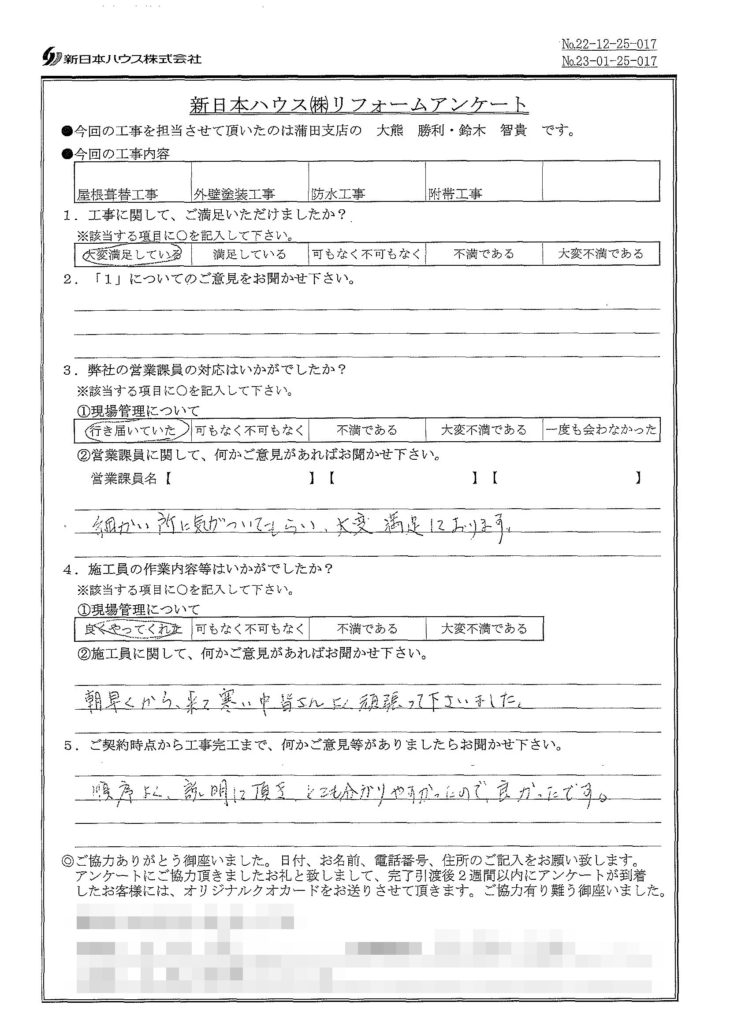 新日本ハウス株式会社
№22-12-25-017
№23-01-25-017
新日本ハウス㈱リフォームアンケート
●今回の工事を担当させて頂いたのは蒲田支店の 大熊 勝利・鈴木 智貴 です。
●今回の工事内容
屋根葺替工事 外壁塗装工事 防水工事 附帯工事
1．工事に関して、ご満足いただけましたか？
※該当する項目に○を記入して下さい。
大変満足している 満足している 可もなく不可もなく 不満である 大変不満である
2．「1」についてのご意見をお聞かせ下さい。
3．弊社の営業課員の対応はいかがでしたか？
※該当する項目に○を記入して下さい。
①現場管理について
行き届いていた 可もなく不可もなく 不満である 大変不満である 一度も会わなかった
②営業課員に関して、何かご意見があればお聞かせ下さい。
営業課員名【 】【 】【 】
細かい所に気がついてもらい、大変満足しております。
4．施工員の作業内容等はいかがでしたか？
※該当する項目に○を記入して下さい。
①現場管理について
良くやってくれた 可もなく不可もなく 不満である 大変不満である
②施工員に関して、何かご意見があればお聞かせ下さい。
朝早くから、来て寒い中皆さんよく頑張って下さいました。
5．ご契約時点から工事完工まで、何かご意見等がありましたらお聞かせ下さい。
順序よく、説明して頂き、とても分かりやすかったので、良かったです。
◎ご協力ありがとう御座いました。日付、お名前、電話番号、住所のご記入をお願い致します。
アンケートにご協力頂きましたお礼と致しまして、完了引渡後2週間以内にアンケートが到着
したお客様には、オリジナルクオカードをお送りさせて頂きます。ご協力有り難う御座いました。